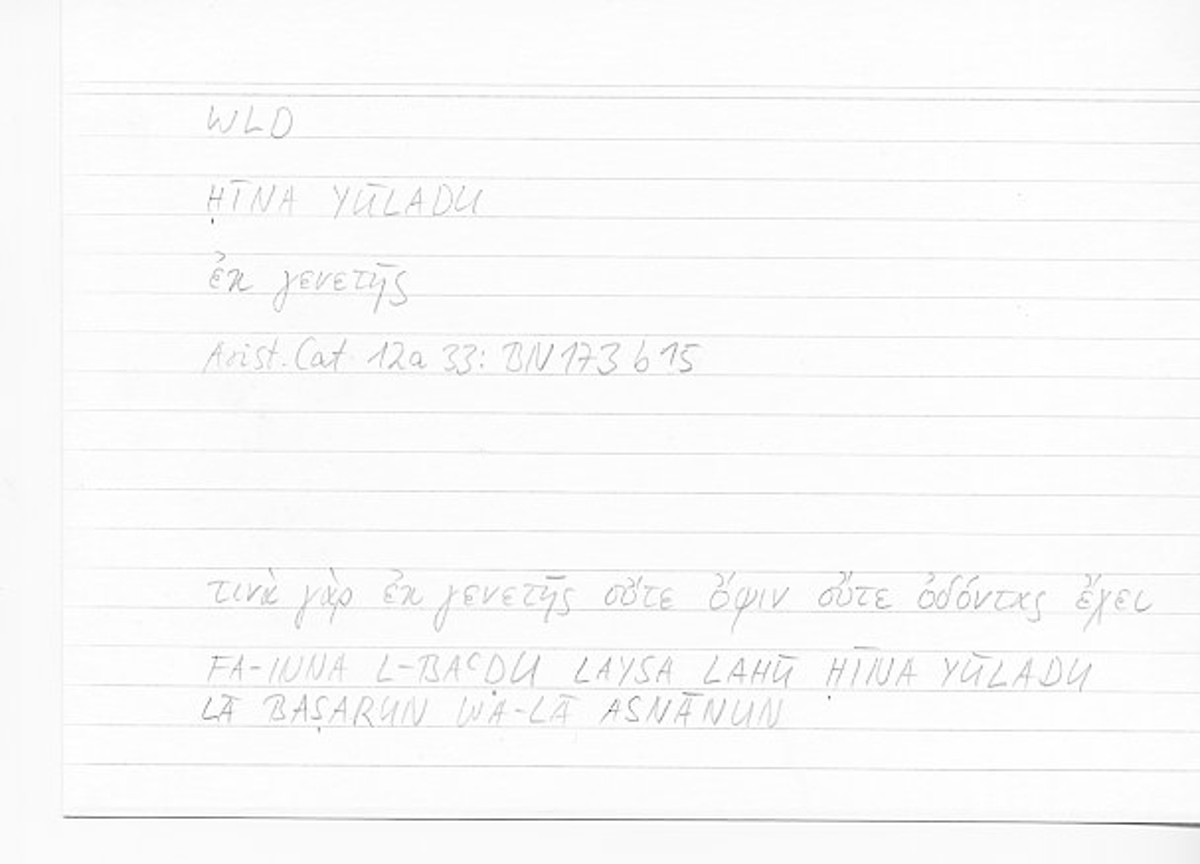 WLD
ḤĪNA YŪLADU
ἐκ γενετῆς
Arist. Cat 12a 33: BN 173 b 15
τινὰ γὰρ ἐκ γενετῆς οὔτε ὄψιν οὔτε ὀδόντας ἔχει
FA-INNA L-BAʿḌU LAYSA LAHŪ ḤĪNA YŪLADU
LĀ BAṢARUN WA-LĀ ASNĀNUN